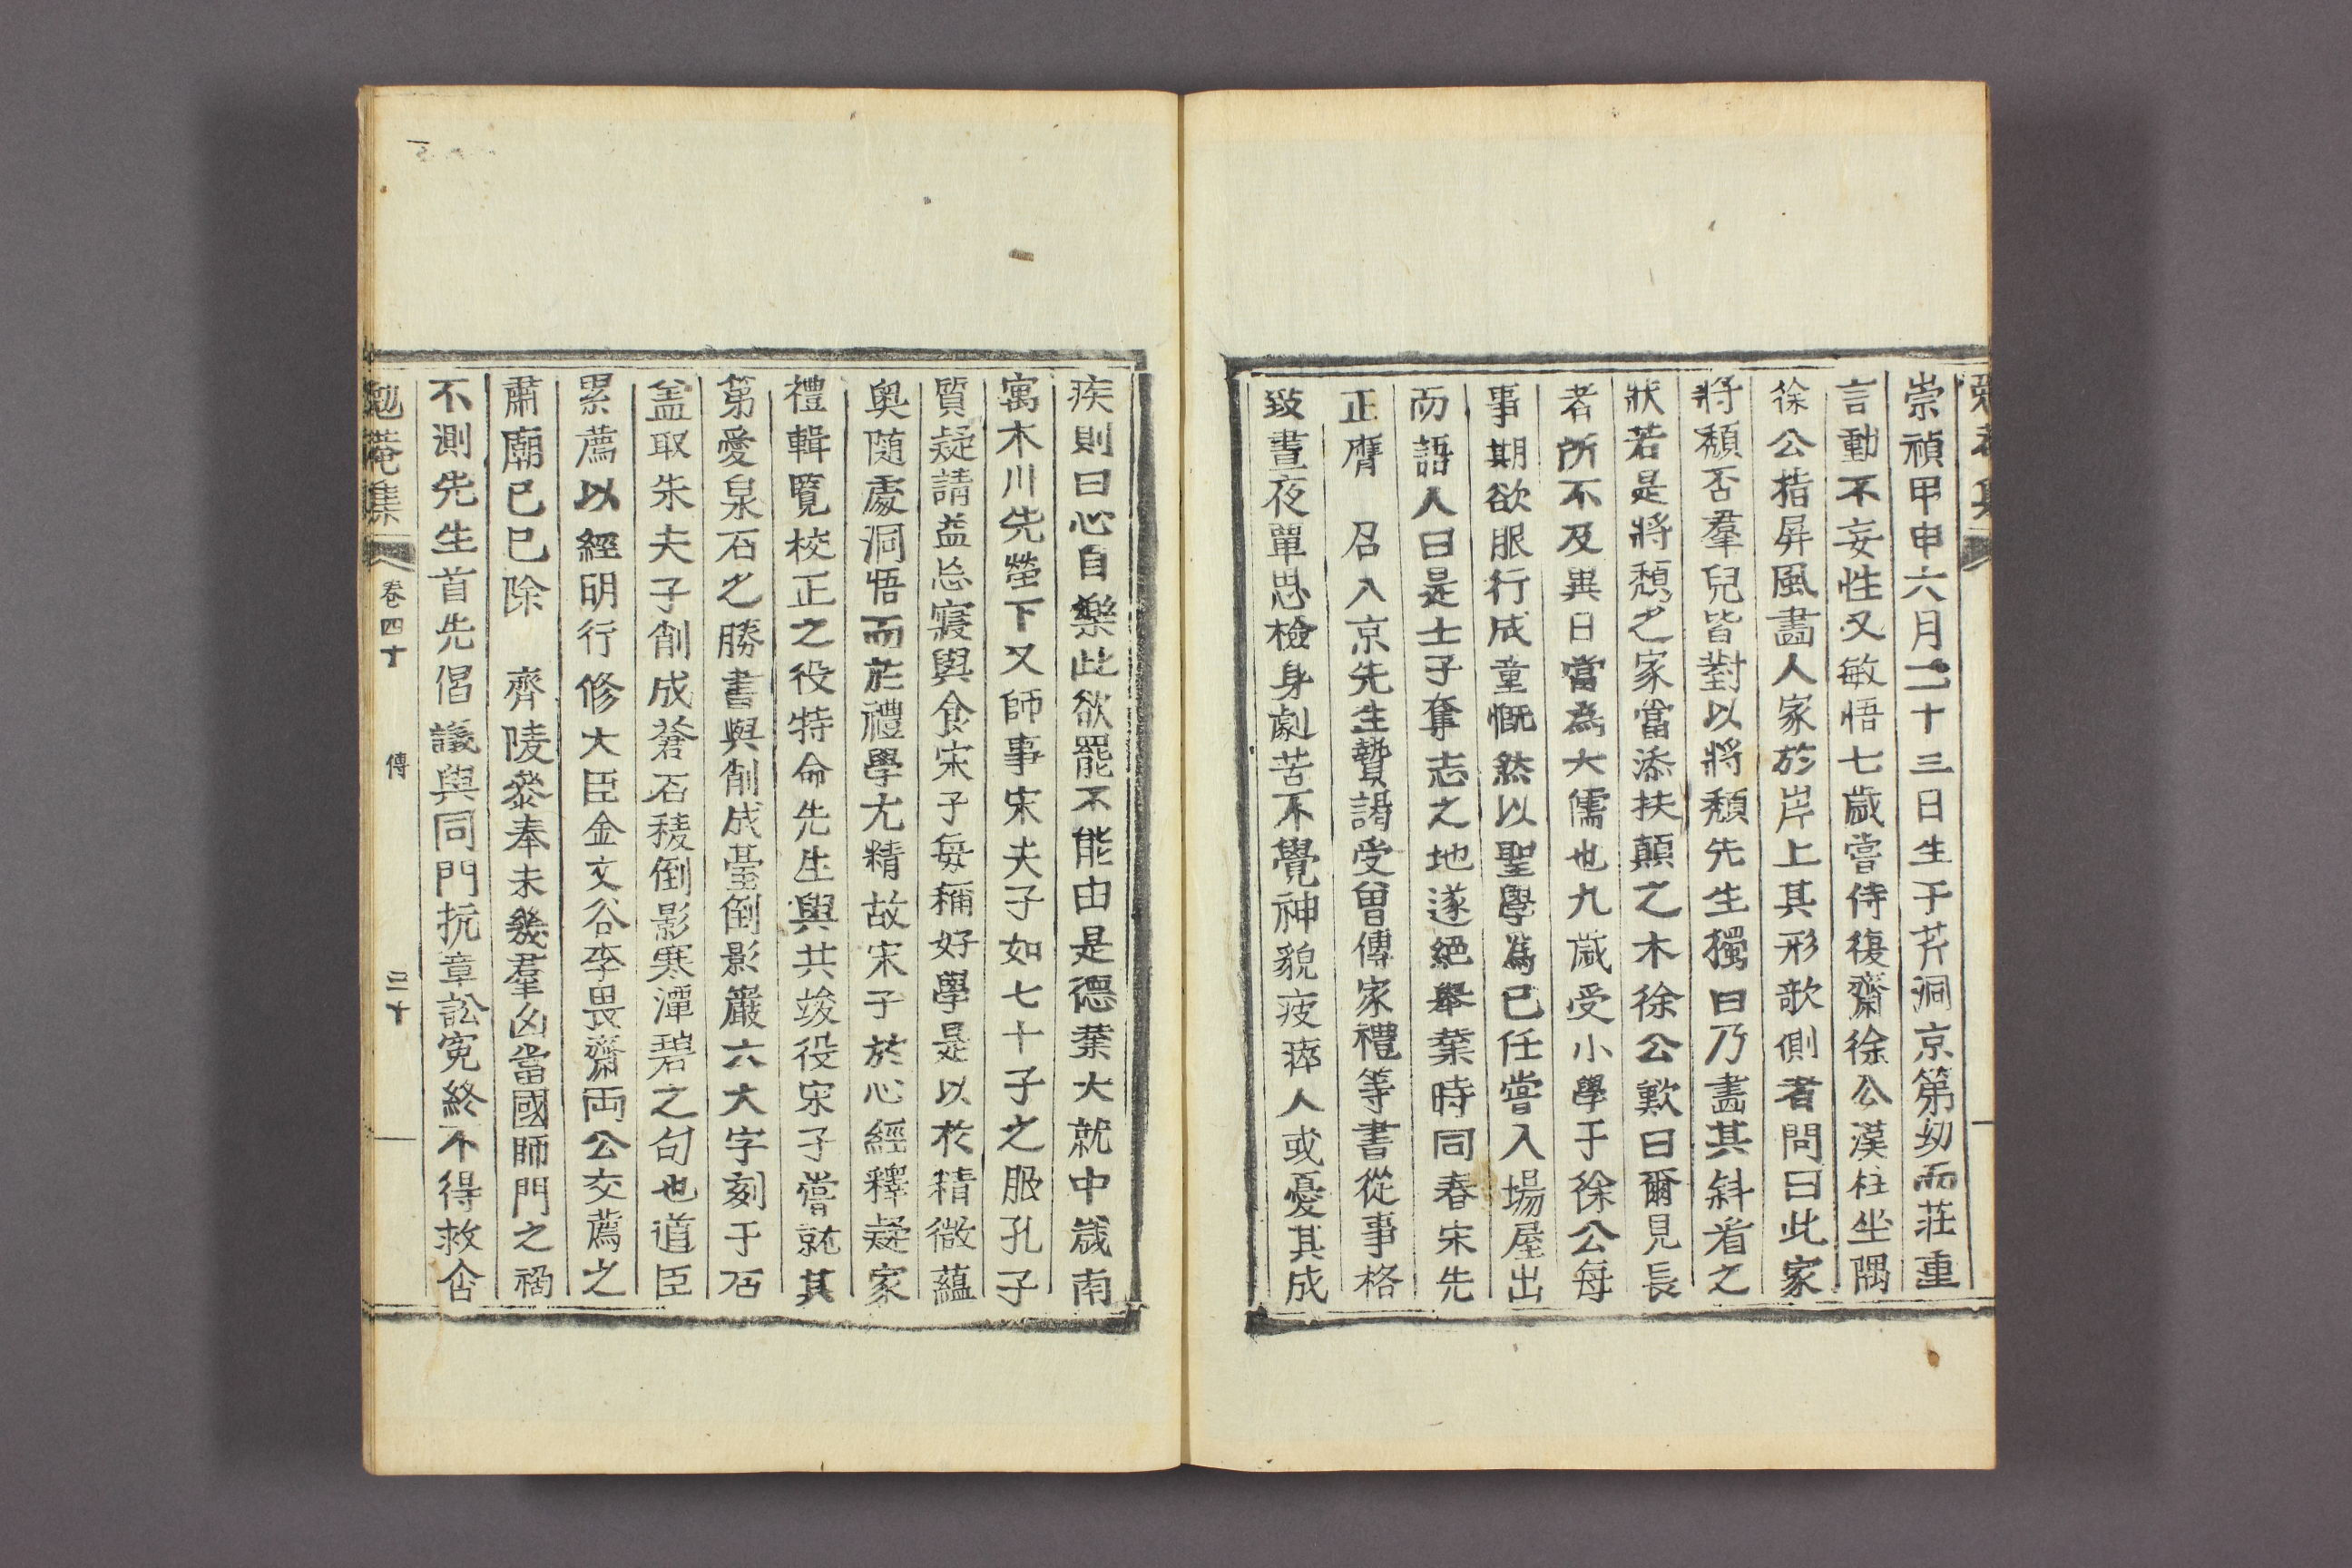 崇禎甲申六月二十三日生于芹洞京第幼而莊重
言動不妄性又敏悟七歲嘗侍復齋徐公漢柱坐隅
徐公指屛風畵人家於岸上其形欹側者問曰此家
將頹否羣兒皆對以將頹先生獨曰乃畵其斜看之
狀若是將頹之家當添扶顚之木徐公歎曰爾見長
者所不及異日當爲大儒也九歲受小學于徐公每
事期欲服行成童慨然以聖學爲己任嘗入場屋出
而語人曰是士子奪志之地遂絕擧業時同春宋先
正膺 召入京先生贄謁受曾傳家禮等書從事格
致晝夜覃思檢身劇苦不覺神貌疲瘁人或憂其成
疾則曰心自樂此欲罷不能由是德業大就中歲南
寓木川先塋下又師事宋夫子如七十子之服孔子
質疑請益忘寢與食宋子每稱好學是以於精微蘊
奧隨處洞悟而於禮學尤精故宋子於心經釋疑家
禮輯覽校正之役特命先生與共竣役宋子嘗就其
第愛泉石之勝書與削成臺倒影巖六大字刻于石
盖取朱夫子削成蒼石稜倒影寒潭碧之句也道臣
累薦以經明行修大臣金文谷李畏齋両公交薦之
肅廟己巳除 齊陵叅奉未幾羣凶當國師門之禍
不測先生首先倡議與同門抗章訟寃終不得救含
勉菴集 卷四十 傳 三十